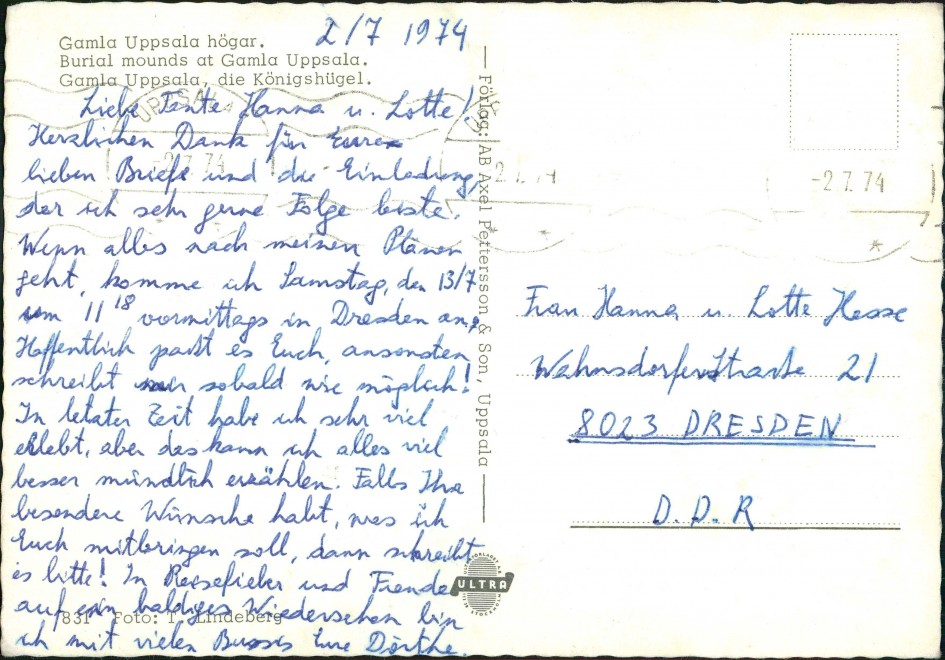 Gamla Uppsala högar.
Burial mounds at Gamla Uppsala.
Gamla Uppsala, die Königshügel.
2/7 1974
Liebe Tante Hanna u. Lotte!
Herzlichen Dank für Eure
lieben Briefe und die Einladung,
der ich sehr gerne Folge leiste.
Wenn alles nach meinen Plänen
geht, komme ich Samstag, den 13/7
um 11 18 vormittags in Dresden an.
Hoffentlich paßt es Euch, ansonsten
schreibt mir sobald wie möglich!
In letzter Zeit habe ich sehr viel
erlebt, aber das kann ich alles viel
besser mündlich erzählen. Falls Ihr
besondere Wünsche habt, was ich
Euch mitbringen soll, dann schreibt
es bitte! In Reisefieber und Freude
auf ein baldiges Wiedersehen bin
ich mit vielen Bussis Eure Dörthe.
831 Foto: T. Lindeberg
Förlag: AB Axel Pettersson & Son, Uppsala
ULTRA
UPPSALA
-2.7.74
-2.7.74
-2.7.74
Frau Hanna u. Lotte Hesse
Wahnsdorferstrasse 21
8023 DRESDEN
D.D.R